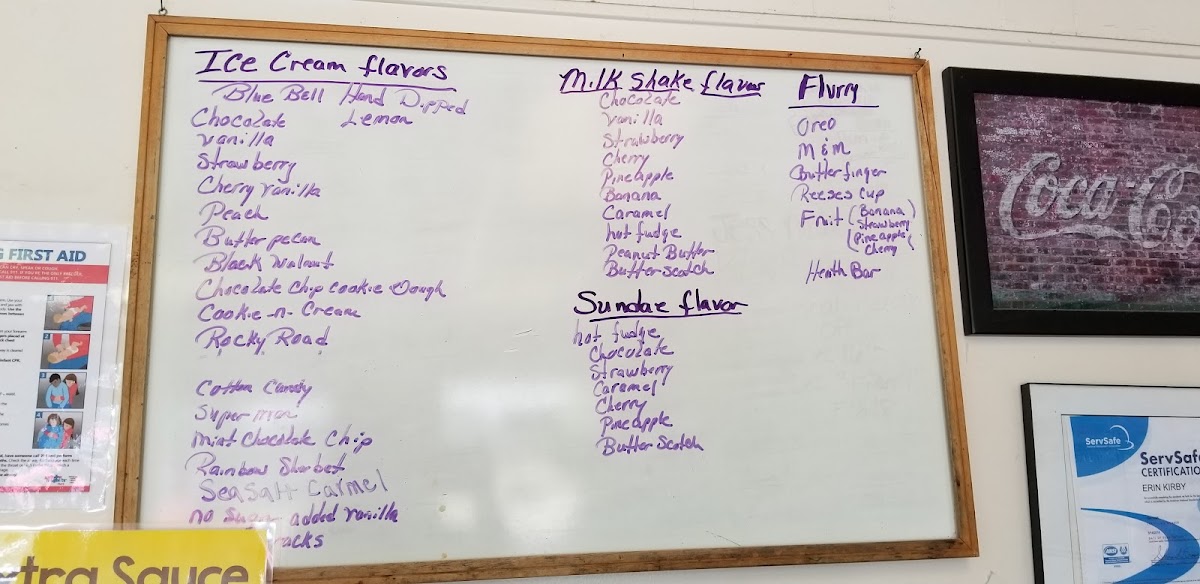 Ice Cream flavors
Blue Bell Hand Dipped
Chocolate Lemon
vanilla
Strawberry
Cherry vanilla
Peach
Butter pecan
Black Walnut
Chocolate Chip cookie Dough
Cookie-n-Cream
Rocky Road
Cotton Candy
Superman
mint Chocolate Chip
Rainbow Sherbet
Sea Salt Carmel
no Sugar added vanilla
Milk Shake flavor
Chocolate
vanilla
Strawberry
Cherry
Pineapple
Banana
Caramel
hot fudge
Peanut Butter
Butterscotch
Sundae flavor
hot fudge
Chocolate
Strawberry
Caramel
Cherry
Pineapple
Butter Scotch
Flurry
Oreo
M&M
Butterfinger
Reeses cup
Fruit (Banana)
Strawberry
(Pineapple)
Cherry
Heath Bar
FIRST AID
Sauce
Coca-
ServSafe
CERTIFICATIO
ERIN KIRBY